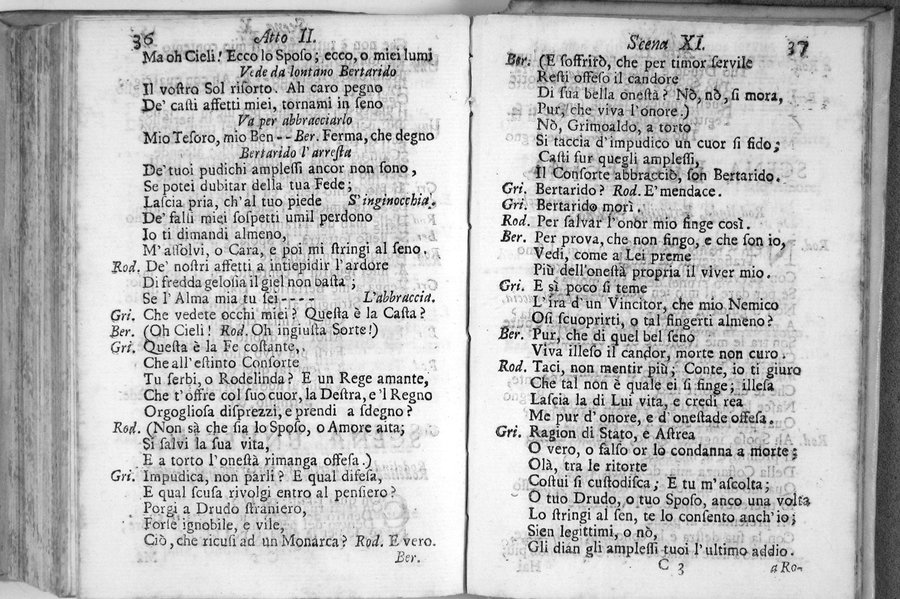 36 Atto II.
Ma oh Cieli! Ecco lo Sposo; ecco, o miei lumi
Vede da lontano Bertarido
Il vostro Sol risorto. Ah caro pegno
De' casti affetti miei, tornami in seno
Va per abbracciarlo
Mio Tesoro, mio Ben -- Ber. Ferma, che degno
Bertarido l'arresta
De' tuoi pudichi amplessi ancor non sono,
Se potei dubitar della tua Fede;
Lascia pria, ch'al tuo piede S'inginocchia.
De' falli miei sospetti umil perdono
Io ti dimandi almeno,
M'assolvi, o Cara, e poi mi stringi al seno.
Rod. De' nostri affetti a intiepidir l'ardore
Di fredda gelosia il giel non basta;
Se l'Alma mia tu sei ---- L'abbraccia.
Gri. Che vedete occhi miei? Questa è la Casta?
Ber. (Oh Cieli! Rod. Oh ingiusta Sorte!)
Gri. Questa è la Fe costante,
Che all'estinto Consorte
Tu serbi, o Rodelinda? E un Rege amante,
Che t'offre col suo cuor, la Destra, e 'l Regno
Orgogliosa disprezzi, e prendi a sdegno?
Rod. (Non sà che sia lo Sposo, o Amore aita;
Si salvi la sua vita,
E a torto l'onestà rimanga offesa.)
Gri. Impudica, non parli? E qual difesa,
E qual scusa rivolgi entro al pensiero?
Porgi a Drudo straniero,
Forse ignobile, e vile,
Ciò, che ricusi ad un Monarca? Rod. E vero.
Ber.
Scena XI. 37
Ber. (E soffrirò, che per timor servile
Resti offeso il candore
Di sua bella onestà? Nò, nò, si mora,
Pur, che viva l'onore.)
Nò, Grimoaldo, a torto
Si taccia d'impudico un cuor sì fido;
Casti fur quegli amplessi,
Il Consorte abbracciò, son Bertarido.
Gri. Bertarido? Rod. E' mendace.
Gri. Bertarido morì.
Rod. Per salvar l'onor mio finge così.
Ber. Per prova, che non fingo, e che son io,
Vedi, come a Lei preme
Più dell'onestà propria il viver mio.
Gri. E sì poco si teme
L'ira d'un Vincitor, che mio Nemico
Osi scuoprirti, o tal fingerti almeno?
Ber. Pur, che di quel bel seno
Viva illeso il candor, morte non curo.
Rod. Taci, non mentir più; Conte, io ti giuro
Che tal non è quale ei si finge; illesa
Lascia la di Lui vita, e credi rea
Me pur d'onore, e d'onestade offesa.
Gri. Ragion di Stato, e Astrea
O vero, o falso or lo condanna a morte;
Olà, tra le ritorte
Costui si custodisca; E tu m'ascolta;
O tuo Drudo, o tuo Sposo, anco una volta
Lo stringi al sen, te lo consento anch'io;
Sien legittimi, o nò,
Gli dian gli amplessi tuoi l'ultimo addio.
C 3 a Ro-